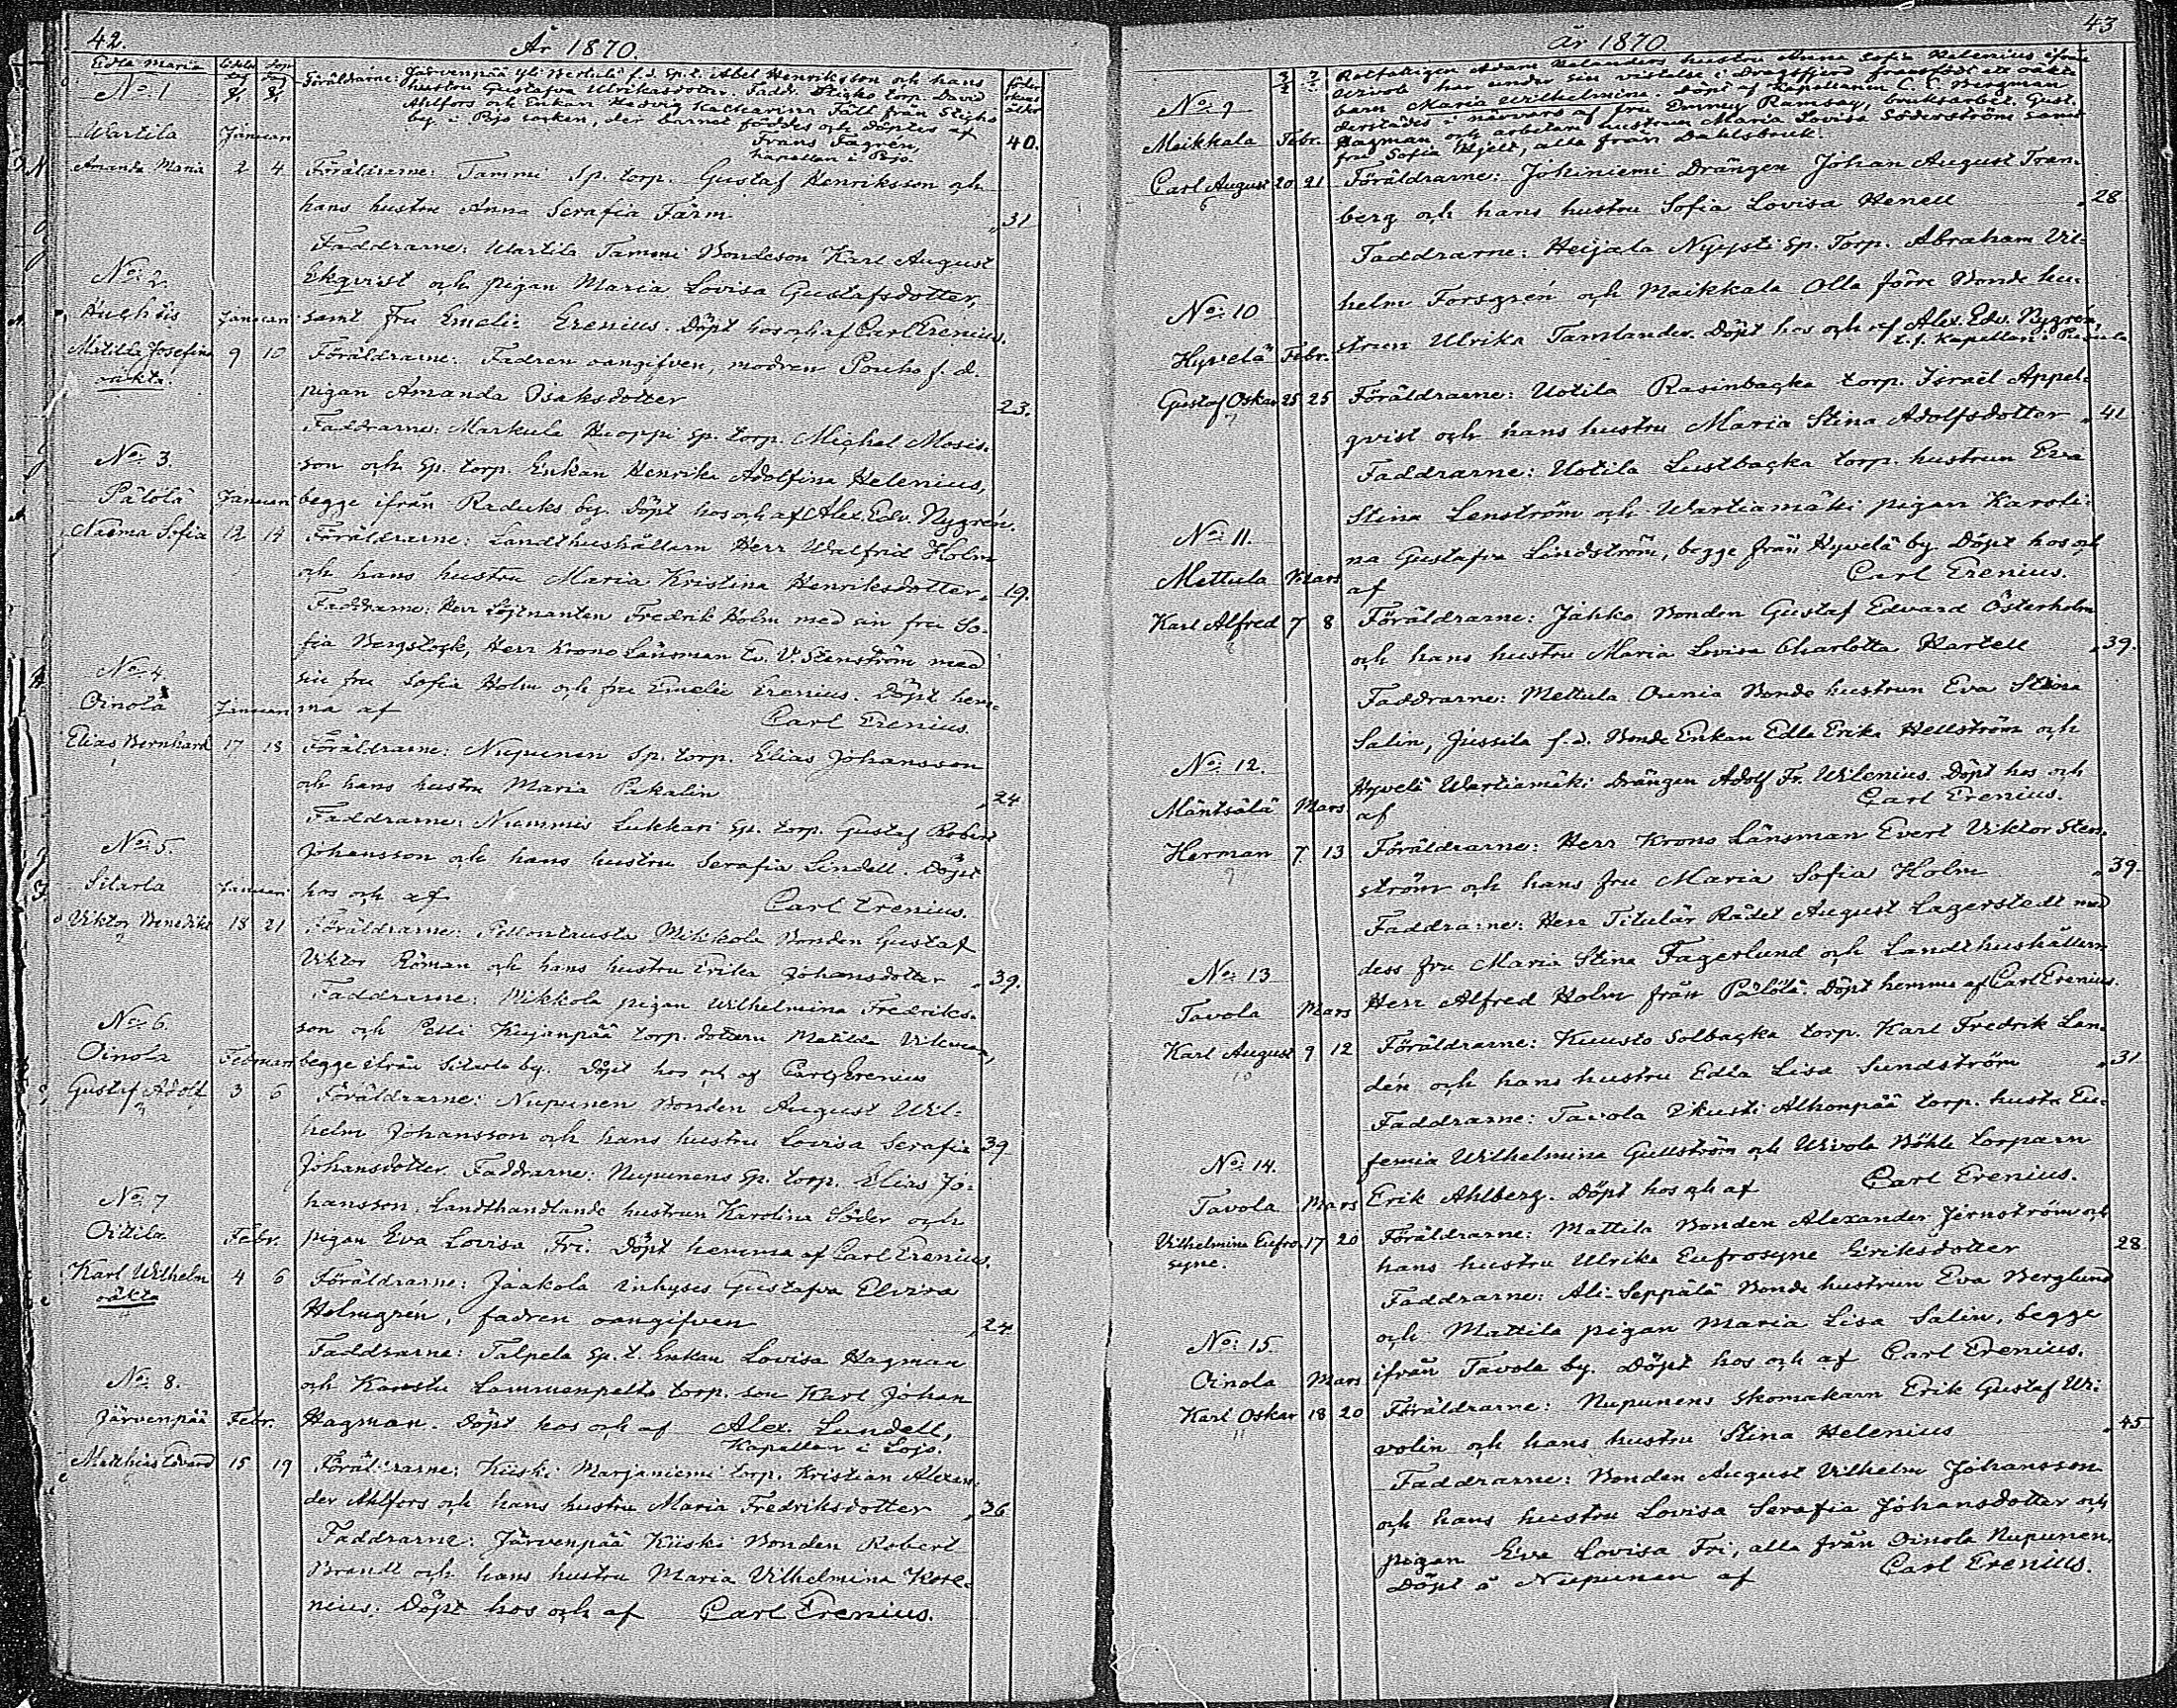 42.
År 1870.
Edla Maria
Föräldrarne: Järvenpää Yli Bertula f.d. sp. t. Abel Henriksson och hans
hustru Gustafva Ulriksdotter. Faddr. Stighs torp. David
Ahlfors och Enkan Hedvig Katharina Fält från Stighs
by i Pojo socken, der barnet föddes och döptes af
Frans Fagrén,
kapellan i Pojo.
40.
No: 1
Wartila Januari
Amanda Maria 2 4 Föräldrarne: Tammi Sp. torp. Gustaf Henriksson och
hans hustru Anna Serafia Färm „31
Faddrarne: Wartila Tammi Bondeson Karl August
Ekqvist och pigan Maria Lovisa Gustafsdotter,
samt fru Emelie Erenius. Döpt hos och af Carl Erenius.
No: 2.
Huhtis Januari
Matilda Josefina 9 10 Föräldrarne: Fadren oangifven, modren f. d.
oäkta.
pigan Amanda Isaksdotter 23.
Faddrarne: Markula Huoppi sp. torp. Michel Mosis-
son och sp. torp. Enkan Henrika Adolfina Helenius,
begge ifrån Raduks by. Döpt hos och af Alex. Edv. Nygrén.
No: 3.
Pälölä Januari
Naëma Sofia 12 14 Föräldrarne: Landthushållarn Herr Walfrid Holm
och hans hustru Maria Kristina Henriksdotter „19.
Faddrarne: Herr Löjtnanten Fredrik Holm med sin fru So-
fia Bergstock, Herr Krono Länsman Ev. V. Stenström med
sin fru Sofia Holm och fru Emelie Erenius. Döpt hem-
ma af Carl Erenius.
No: 4.
Oinola Januari
Elias Bernhard 17 18 Föräldrarne: Nupunen Sp. torp. Elias Johansson
och hans hustru Maria Pakalin „24
Faddrarne: Nummis Lukkari sp. torp. Gustaf Robert
Johansson och hans hustru Serafia Lindell. Döpt
hos och af Carl Erenius.
No: 5.
Sitarla Januari
Viktor Benedikt 18 21 Föräldrarne: Pellontausta Mikkola Bonden Gustaf
Viktor Röman och hans hustru Erika Johansdotter „39.
Faddrarne: Mikkola pigan Wilhelmina Fredriks-
son och Pelli Kujanpää torp. dottern Matilda
begge ifrån Sitarla by. Döpt hos och af Carl Erenius
No: 6.
Oinola Februari
Gustaf Adolf 3 6 Föräldrarne: Nupunen Bonden August Wil-
helm Johansson och hans hustru Lovisa Serafia 39
Johansdotter. Faddrarne: Nupunens sp. torp. Elias Jo-
hansson, Landthandlande hustrun Karolina Söder och
pigan Eva Lovisa Fri. Döpt hemma af Carl Erenius.
No: 7
Oitila Febr.
Karl Wilhelm 4 6 Föräldrarne: Jaakola inhyses Gustafva Elvira
oäkta
Holmgrén, fadren oangifven „24
Faddrarne: Talpela sp. t. Enkan Lovisa Hagman
och Karstu Lammenpelto torp. son Karl Johan
Hagman. Döpt hos och af Alex. Lundell,
Kapellan i Lojo.
No: 8.
Järvenpää Febr.
Matthias Edvard 15 19 Föräldrarne: Kiiski Marjaniemi torp. Kristian Alexan-
der Ahlfors och hans hustru Maria Fredriksdotter „36
Faddrarne: Järvenpää Kiiski Bonden Robert
Brandt och hans hustru Maria Vilhelmina Kore-
nius. Döpt hos och af Carl Erenius.
43
År 1870
Rotfattigen Adam Helanders hustru Anna Sofia Helenius ifrån
Uivola har under sin vistelse i Dragsfjerd framfödt ett oäkta
barn Maria Wilhelmina. Döpt af Kapellanen C. C. Bergman
derstädes i närvaro af fru Emmy Ramsay, bruksarbet. Gust.
Hagman och arbetare hustrun Maria Lovisa Söderström samt
fru Sofia Hjelt, alla från Dahlsbruk.
No: 9
Maikkala Febr.
Carl August 20 21 Föräldrarne: Johiniemi Drängen Johan August Tran-
berg och hans hustru Sofia Lovisa Henell „28
Faddrarne: Heijala Nyysti Sp. Torp. Abraham Vil-
helm Forsgrén och Maikkala Olla Jörn Bonde hu-
strun Ulrika Tamlander. Döpt hos och af Alex. Edv. Nygrén
t.f. Kapellan i
No: 10
Hyvelä Febr.
Gustaf Oskar 25 25 Föräldrarne: Uotila Rasinbacka torp. Israël Appel-
qvist och hans hustru Maria Stina Adolfsdotter „41
Faddrarne: Uotila Lustbacka torp. hustrun Eva
Stina Lenström och Wartiamäki pigan Karoli-
na Gustafva Lindström, begge från Hyvelä by. Döpt hos och
af Carl Erenius.
No: 11.
Mettula Mars
Karl Alfred 7 8 Föräldrarne: Jahko Bonden Gustaf Edvard Österholm
och hans hustru Maria Lovisa Charlotta Hartell „39.
Faddrarne: Mettula Ounia Bonde hustrun Eva Stina
Salin, Jussila f.d. Bonde Enkan Edla Erika Hellström och
Hyvelä Wartiamäki Drängen Adolf Fr. Wilenius. Döpt hos och
af Carl Erenius.
No: 12.
Mäntsälä Mars
Herman 7 13 Föräldrarne: Herr Krono Länsman Evert Viktor Sten-
ström och hans fru Maria Sofia Holm „39
Faddrarne: Herr Titulär Rådet August Lagerstedt med
dess fru Maria Stina Fagerlund och Landthushållarn
Herr Alfred Holm från Pälölä. Döpt hemma af Carl Erenius.
No: 13
Tavola Mars
Karl August 9 12 Föräldrarne: Kuusto Solbacka torp. Karl Fredrik Lan-
dén och hans hustru Edla Lisa Sundström „31
Faddrarne: Tavola Alhonpää torp. hustr. Eu-
femia Wilhelmina Gullström och Uivola Böhle torparn
Erik Ahlberg. Döpt hos och af Carl Erenius.
No: 14.
Tavola Mars
Vilhelmina Eufro- 17 20 Föräldrarne: Mattila Bonden Alexander Jernström och
syne.
hans hustru Ulrika Eufrosyne Eriksdotter 28
Faddrarne: Ali-Seppälä Bonde hustrun Eva Berglund
och Mattila pigan Maria Lisa Salin, begge
ifrån Tavola by. Döpt hos och af Carl Erenius.
No: 15.
Oinola Mars
Karl Oskar 18 20 Föräldrarne: Nupunens skomakarn Erik Gustaf Wi-
volin och hans hustru Stina Helenius „45
Faddrarne: Bonden August Vilhelm Johansson
och hans hustru Lovisa Serafia Johansdotter och
pigan Eva Lovisa Fri, alla från Oinola Nupunen.
Döpt å Nupunen af Carl Erenius.